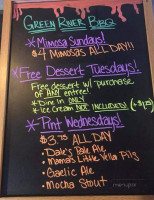 Green River BBQ
*Mimosa Sundays!
$4 Mimosas ALL DAY!!
*Free Dessert Tuesdays!
Free dessert w/ purchase
of ANY entree!
*Dine In ONLY
*Ice Cream NOT INCLUDED!
*Pint Wednesdays!
$3.75 ALL DAY
•Dale's Pale Ale
•Mama's Little Yella Pils
•Gaelic Ale
•Mocha Stout